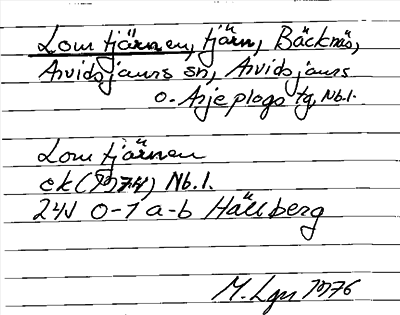 Lomtjärnen, tjärn, Bäcknäs,
Arvidsjaurs sn, Arvidsjaurs
o. Arjeplogs tg, Nb.l.
Lomtjärnen
ek (1974) Nb.l.
24J 0-1 a-b Hällberg
M. Lgn 1976